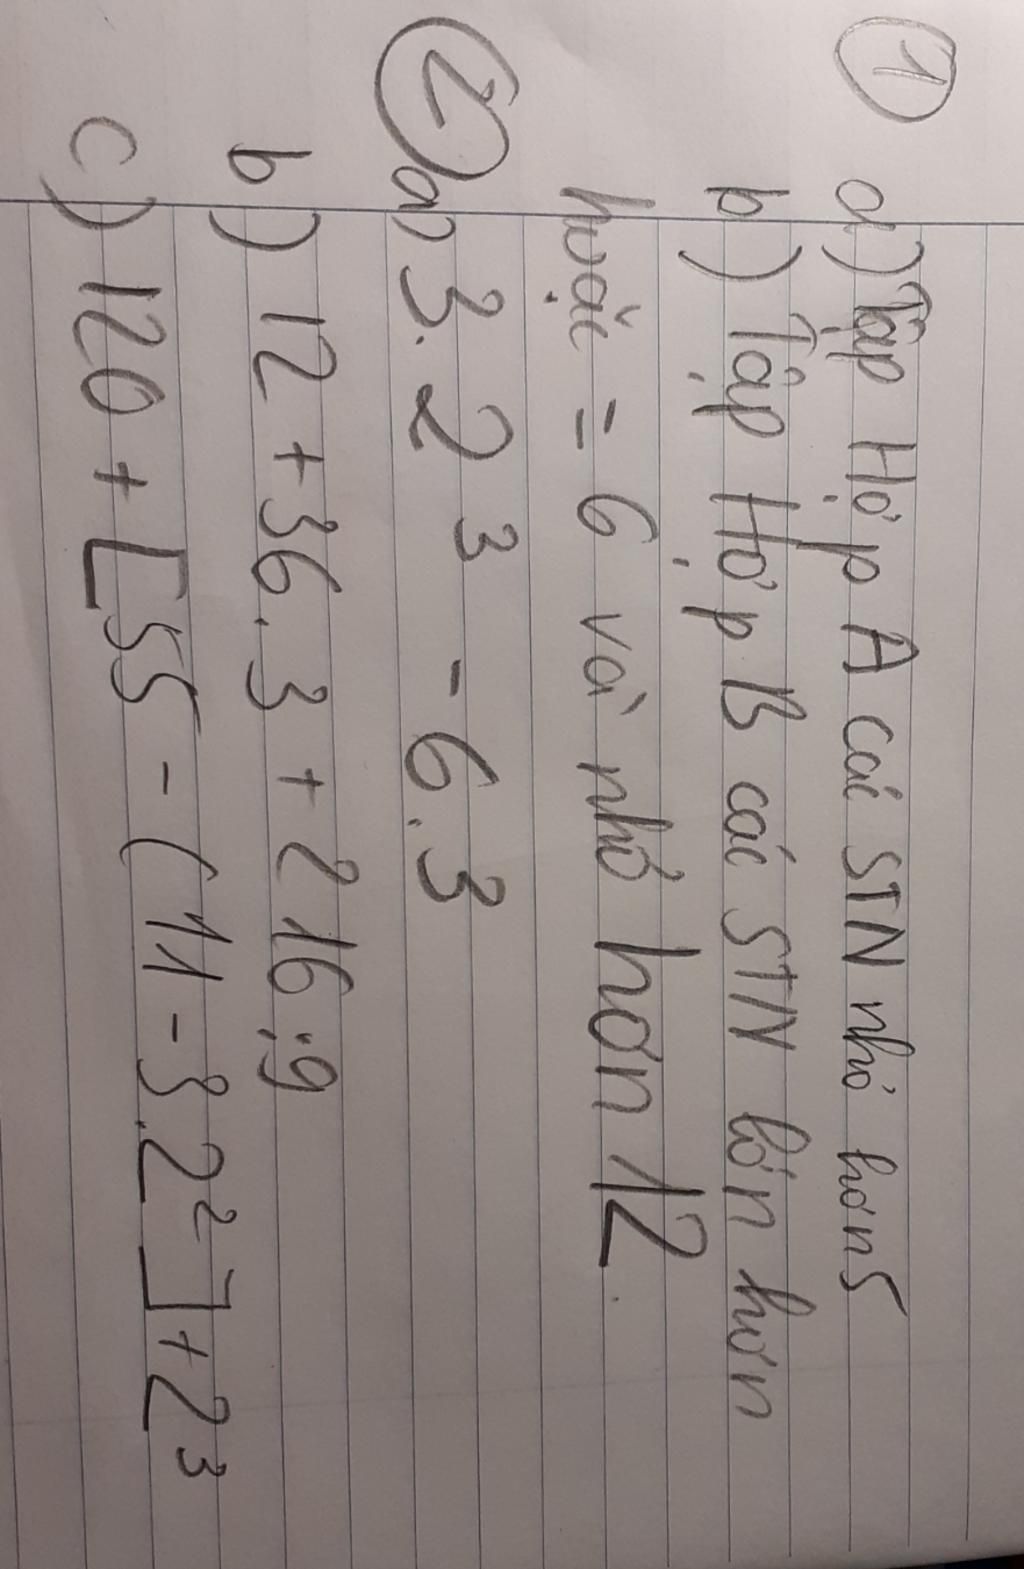 ① a) Tập Hợp A các STN nhỏ hơn 5
b) Tập Hợp B các STN lớn hơn
hoặc = 6 và nhỏ hơn 12.
② a) 3.2³ - 6.3
b) 12 + 36.3 + 216:9
c) 120 + [55 - (11 - 3.2²] + 2³